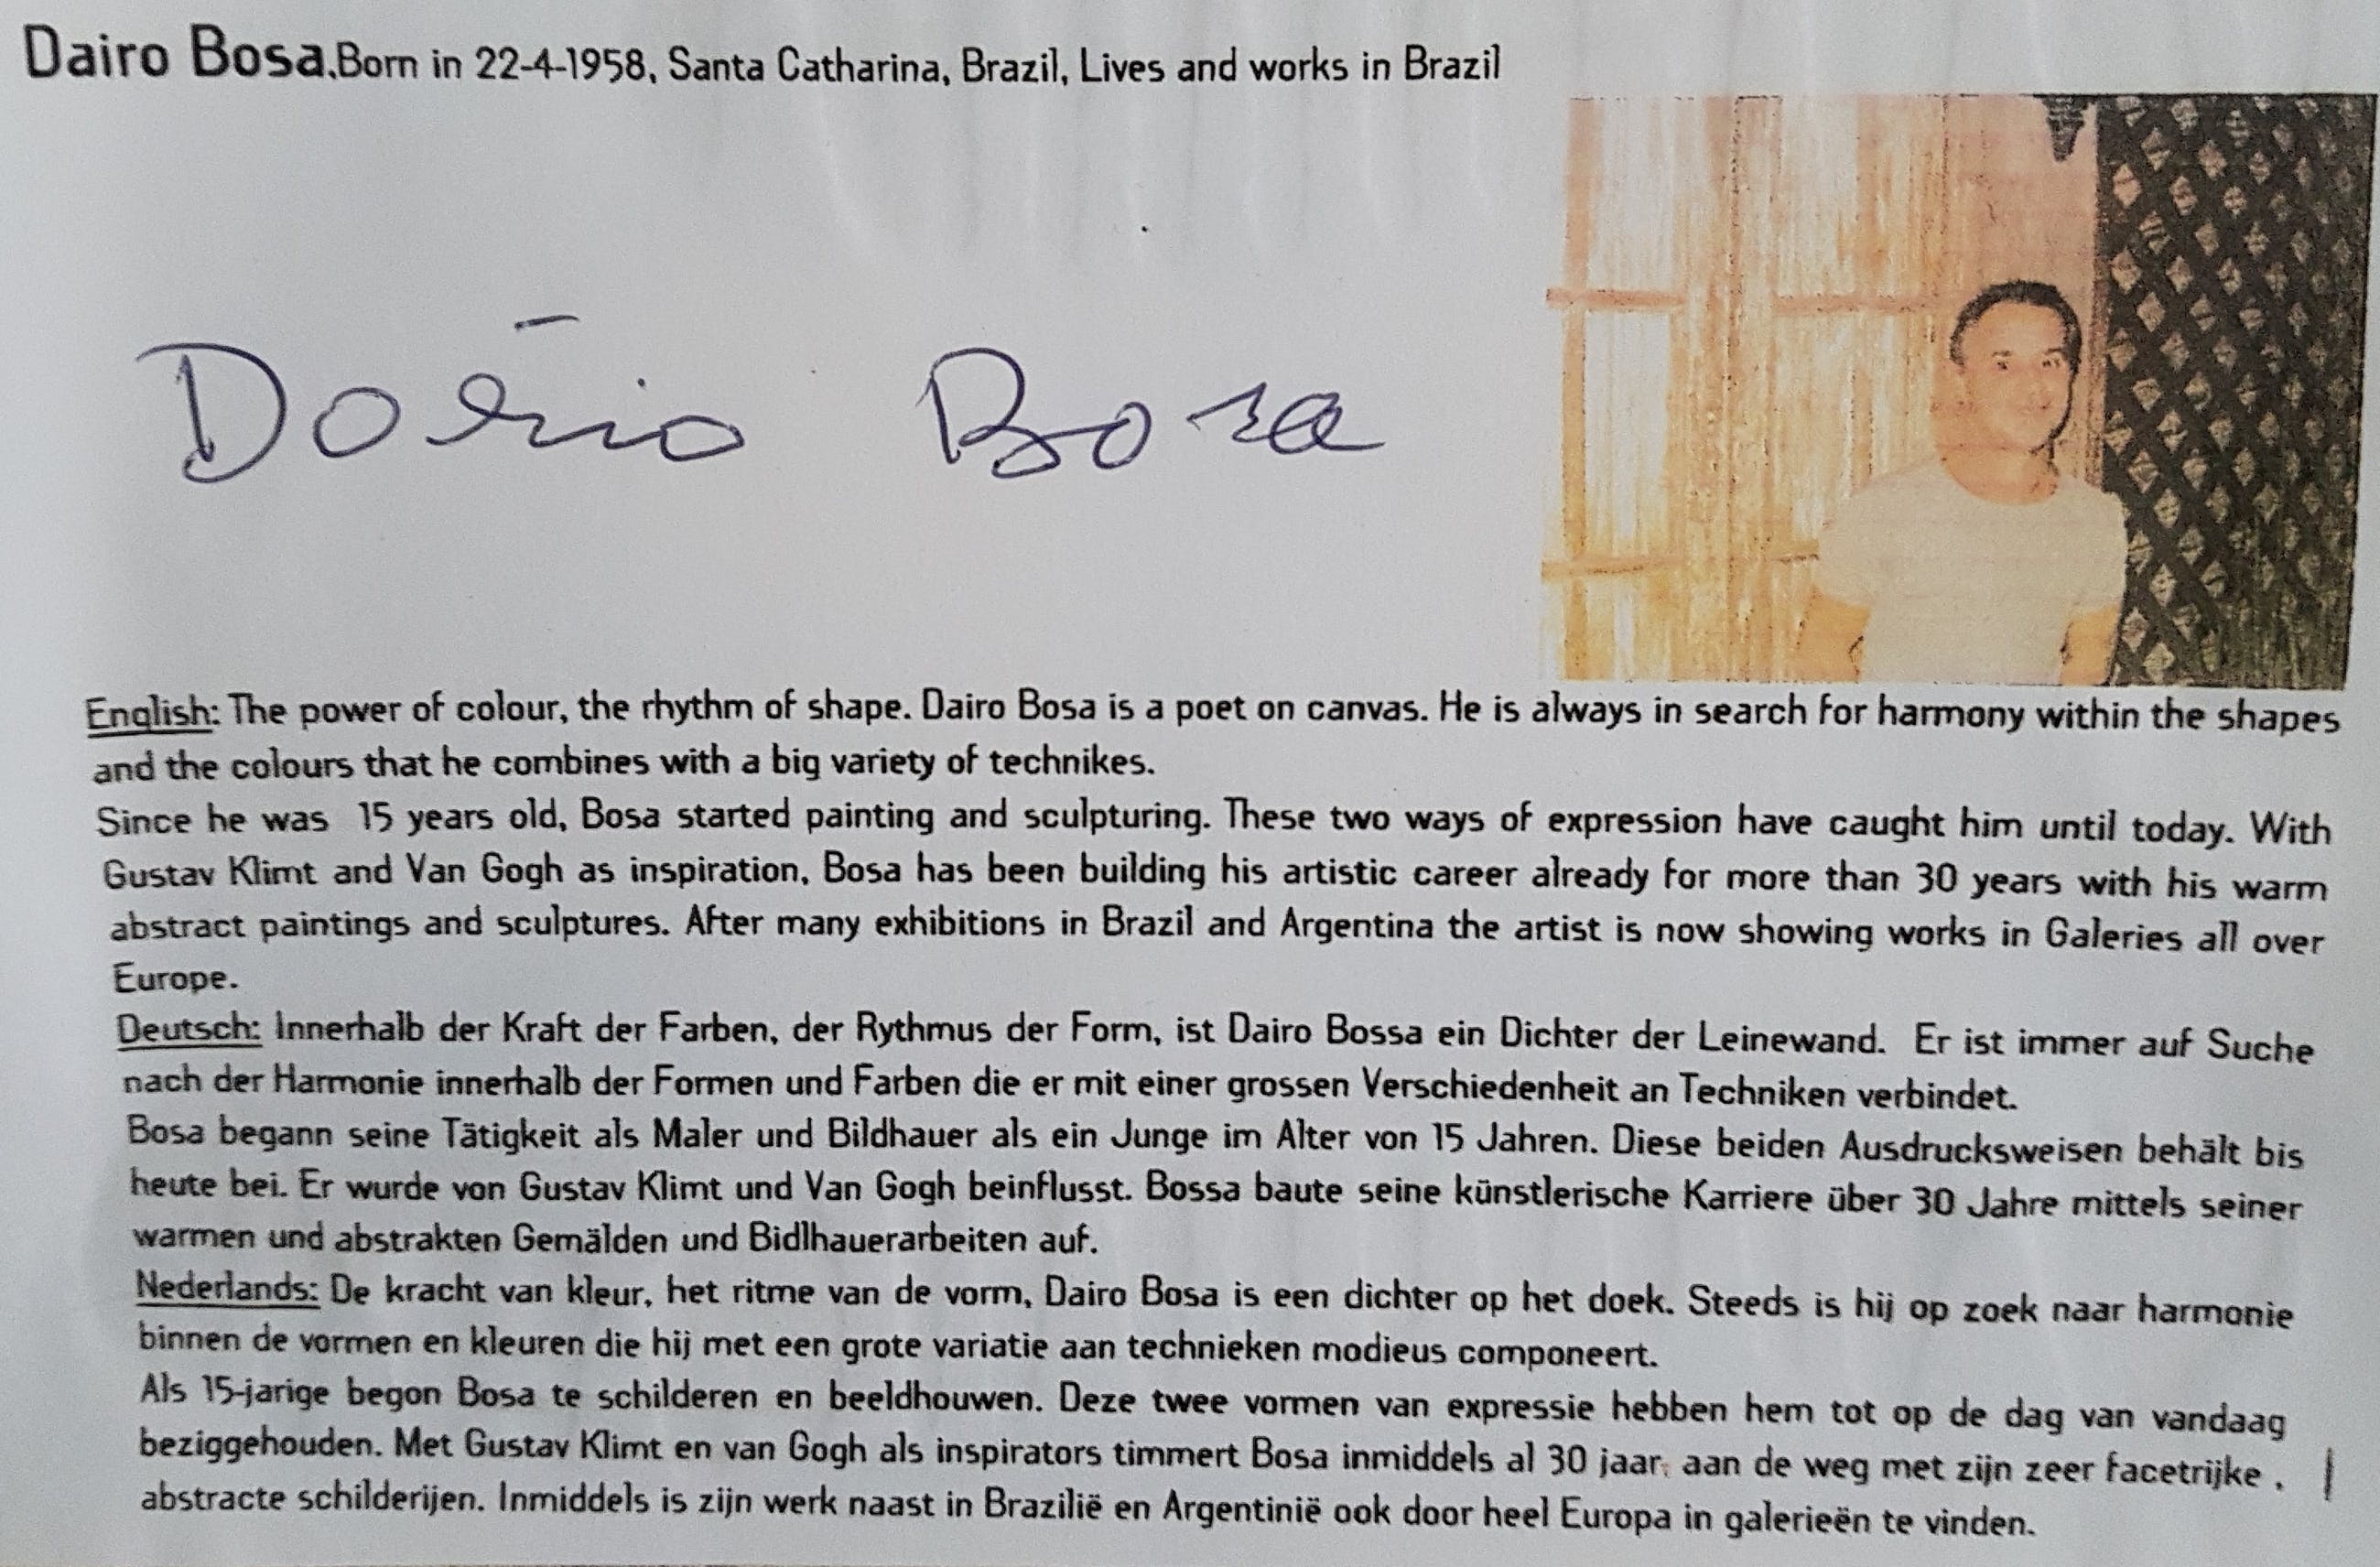 Dairo Bosa.Born in 22-4-1958, Santa Catharina, Brazil, Lives and works in Brazil
Dário Bosa
English: The power of colour, the rhythm of shape. Dairo Bosa is a poet on canvas. He is always in search for harmony within the shapes
and the colours that he combines with a big variety of technikes.
Since he was 15 years old, Bosa started painting and sculpturing. These two ways of expression have caught him until today. With
Gustav Klimt and Van Gogh as inspiration, Bosa has been building his artistic career already for more than 30 years with his warm
abstract paintings and sculptures. After many exhibitions in Brazil and Argentina the artist is now showing works in Galeries all over
Europe.
Deutsch: Innerhalb der Kraft der Farben, der Rythmus der Form, ist Dairo Bossa ein Dichter der Leinewand. Er ist immer auf Suche
nach der Harmonie innerhalb der Formen und Farben die er mit einer grossen Verschiedenheit an Techniken verbindet.
Bosa begann seine Tätigkeit als Maler und Bildhauer als ein Junge im Alter von 15 Jahren. Diese beiden Ausdrucksweisen behält bis
heute bei. Er wurde von Gustav Klimt und Van Gogh beinflusst. Bossa baute seine künstlerische Karriere über 30 Jahre mittels seiner
warmen und abstrakten Gemälden und Bidlhauerarbeiten auf.
Nederlands: De kracht van kleur, het ritme van de vorm, Dairo Bosa is een dichter op het doek. Steeds is hij op zoek naar harmonie
binnen de vormen en kleuren die hij met een grote variatie aan technieken modieus componeert.
Als 15-jarige begon Bosa te schilderen en beeldhouwen. Deze twee vormen van expressie hebben hem tot op de dag van vandaag
beziggehouden. Met Gustav Klimt en van Gogh als inspirators timmert Bosa inmiddels al 30 jaar, aan de weg met zijn zeer facetrijke ,
abstracte schilderijen. Inmiddels is zijn werk naast in Brazilië en Argentinië ook door heel Europa in galerieën te vinden.